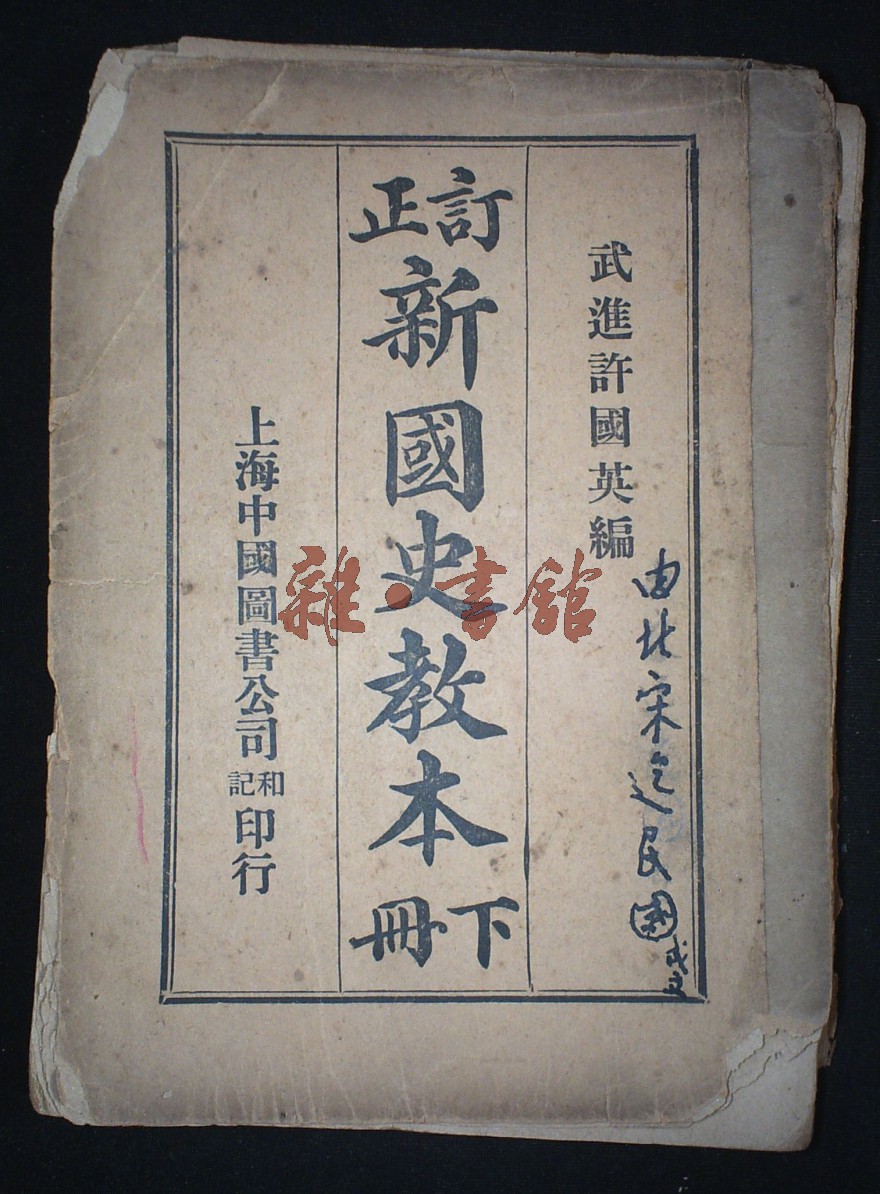 武進許國英編
訂正
新國史教本
下冊
上海中國圖書公司和記印行
由北宋迄民國成立
雜·書館